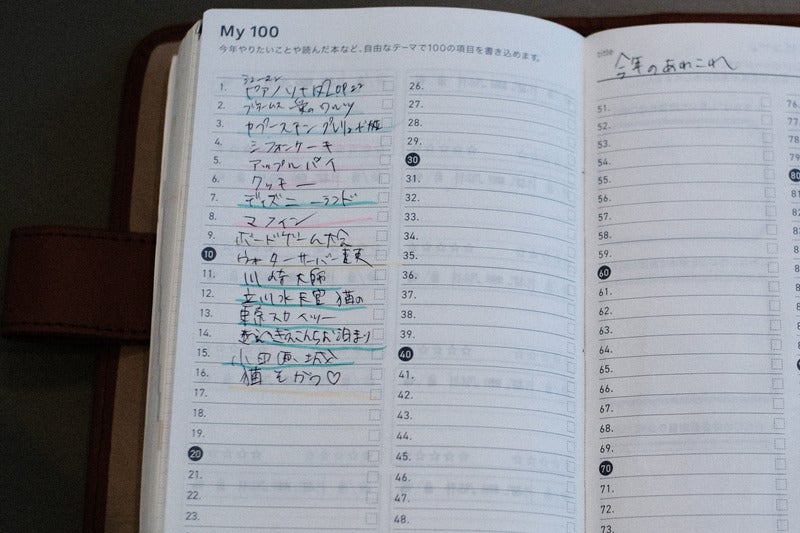 My 100
今年やりたいことや読んだ本など、自由なテーマで100の項目を書き込めます。
1. ピアノソナタ
2. ブラームス 愛のワルツ
3.
4. シフォンケーキ
5. アップルパイ
6. クッキー
7. ディズニーランド
8. マフィン
9. ボードゲーム大会
10 ウォーターサーバー変更
11. 川崎大師
12. 立川水天宮 猫の
13. 東京スカイツリー
14. お泊まり
15. 小田原城
16. 猫をかう♡
17.
18.
19.
20
21.
22.
23.
26.
27.
28.
29.
30
31.
32.
33.
34.
35.
36.
37.
38.
39.
40
41.
42.
43.
44.
45.
46.
47.
48.
title
今年のあれこれ
51.
52.
53.
54.
55.
56.
57.
58.
59.
60
61.
62.
63.
64.
65.
66.
67.
68.
69.
70
71.
72.
73.
76
77
78
79
80